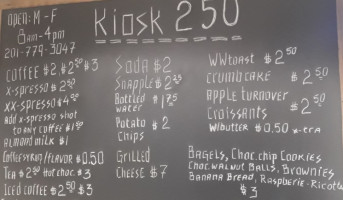 OPEN: M - F
Kiosk 250
8am-4pm
201-779-3047
COFFEE $2, $2.50 $3
X-spresso $2.50
XX-spresso $4.00
Add x-spresso shot
to any coffee $1
Almond milk $1
Coffee syrup/flavor $0.50
Tea $2 Hot choc. $3
Iced coffee $2.50 $3
Soda $2
Snapple $2.25
Bottled
water $1.25
Potato $2
Chips
Grilled
Cheese $7
WWtoast $2.50
crumbcake $2.50
apple turnover
Croissants $2.50
W/butter $0.50 x-tra
Bagels, Choc.chip Cookies
Choc.walnut Balls, Brownies
Banana Bread, Raspberie-Ricotta
$3